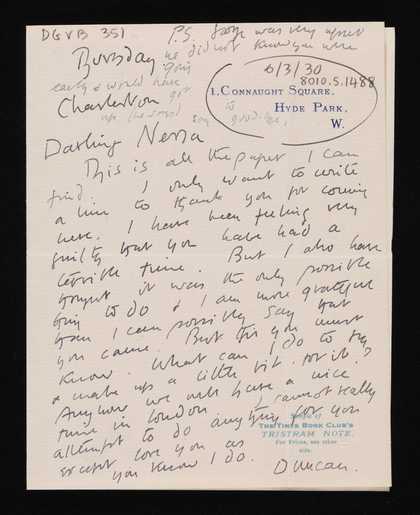 DGVB 351
P.S. George was very upset
Thursday he did not know you were
going
early & would have
Charleston got
up to
say good-bye.
6/3/30
8010.5.1488
1, CONNAUGHT SQUARE,
HYDE PARK,
W.
Darling Nessa
This is all the paper I can
find. I only want to write
a line to thank you for coming
here. I have been feeling very
guilty that you have had a
terrible time. But I also have
thought it was the only possible
thing to do & I am more grateful
than I can possibly say that
you came. But this you must
know. What can I do to try
& make up a little bit for it?
Anyhow we will have a nice
time in London. I cannot really
attempt to do anything for you
except love you as
you know I do. Duncan.
THE TIMES BOOK CLUB'S
TRISTRAM NOTE.
For Prices, see other
side.